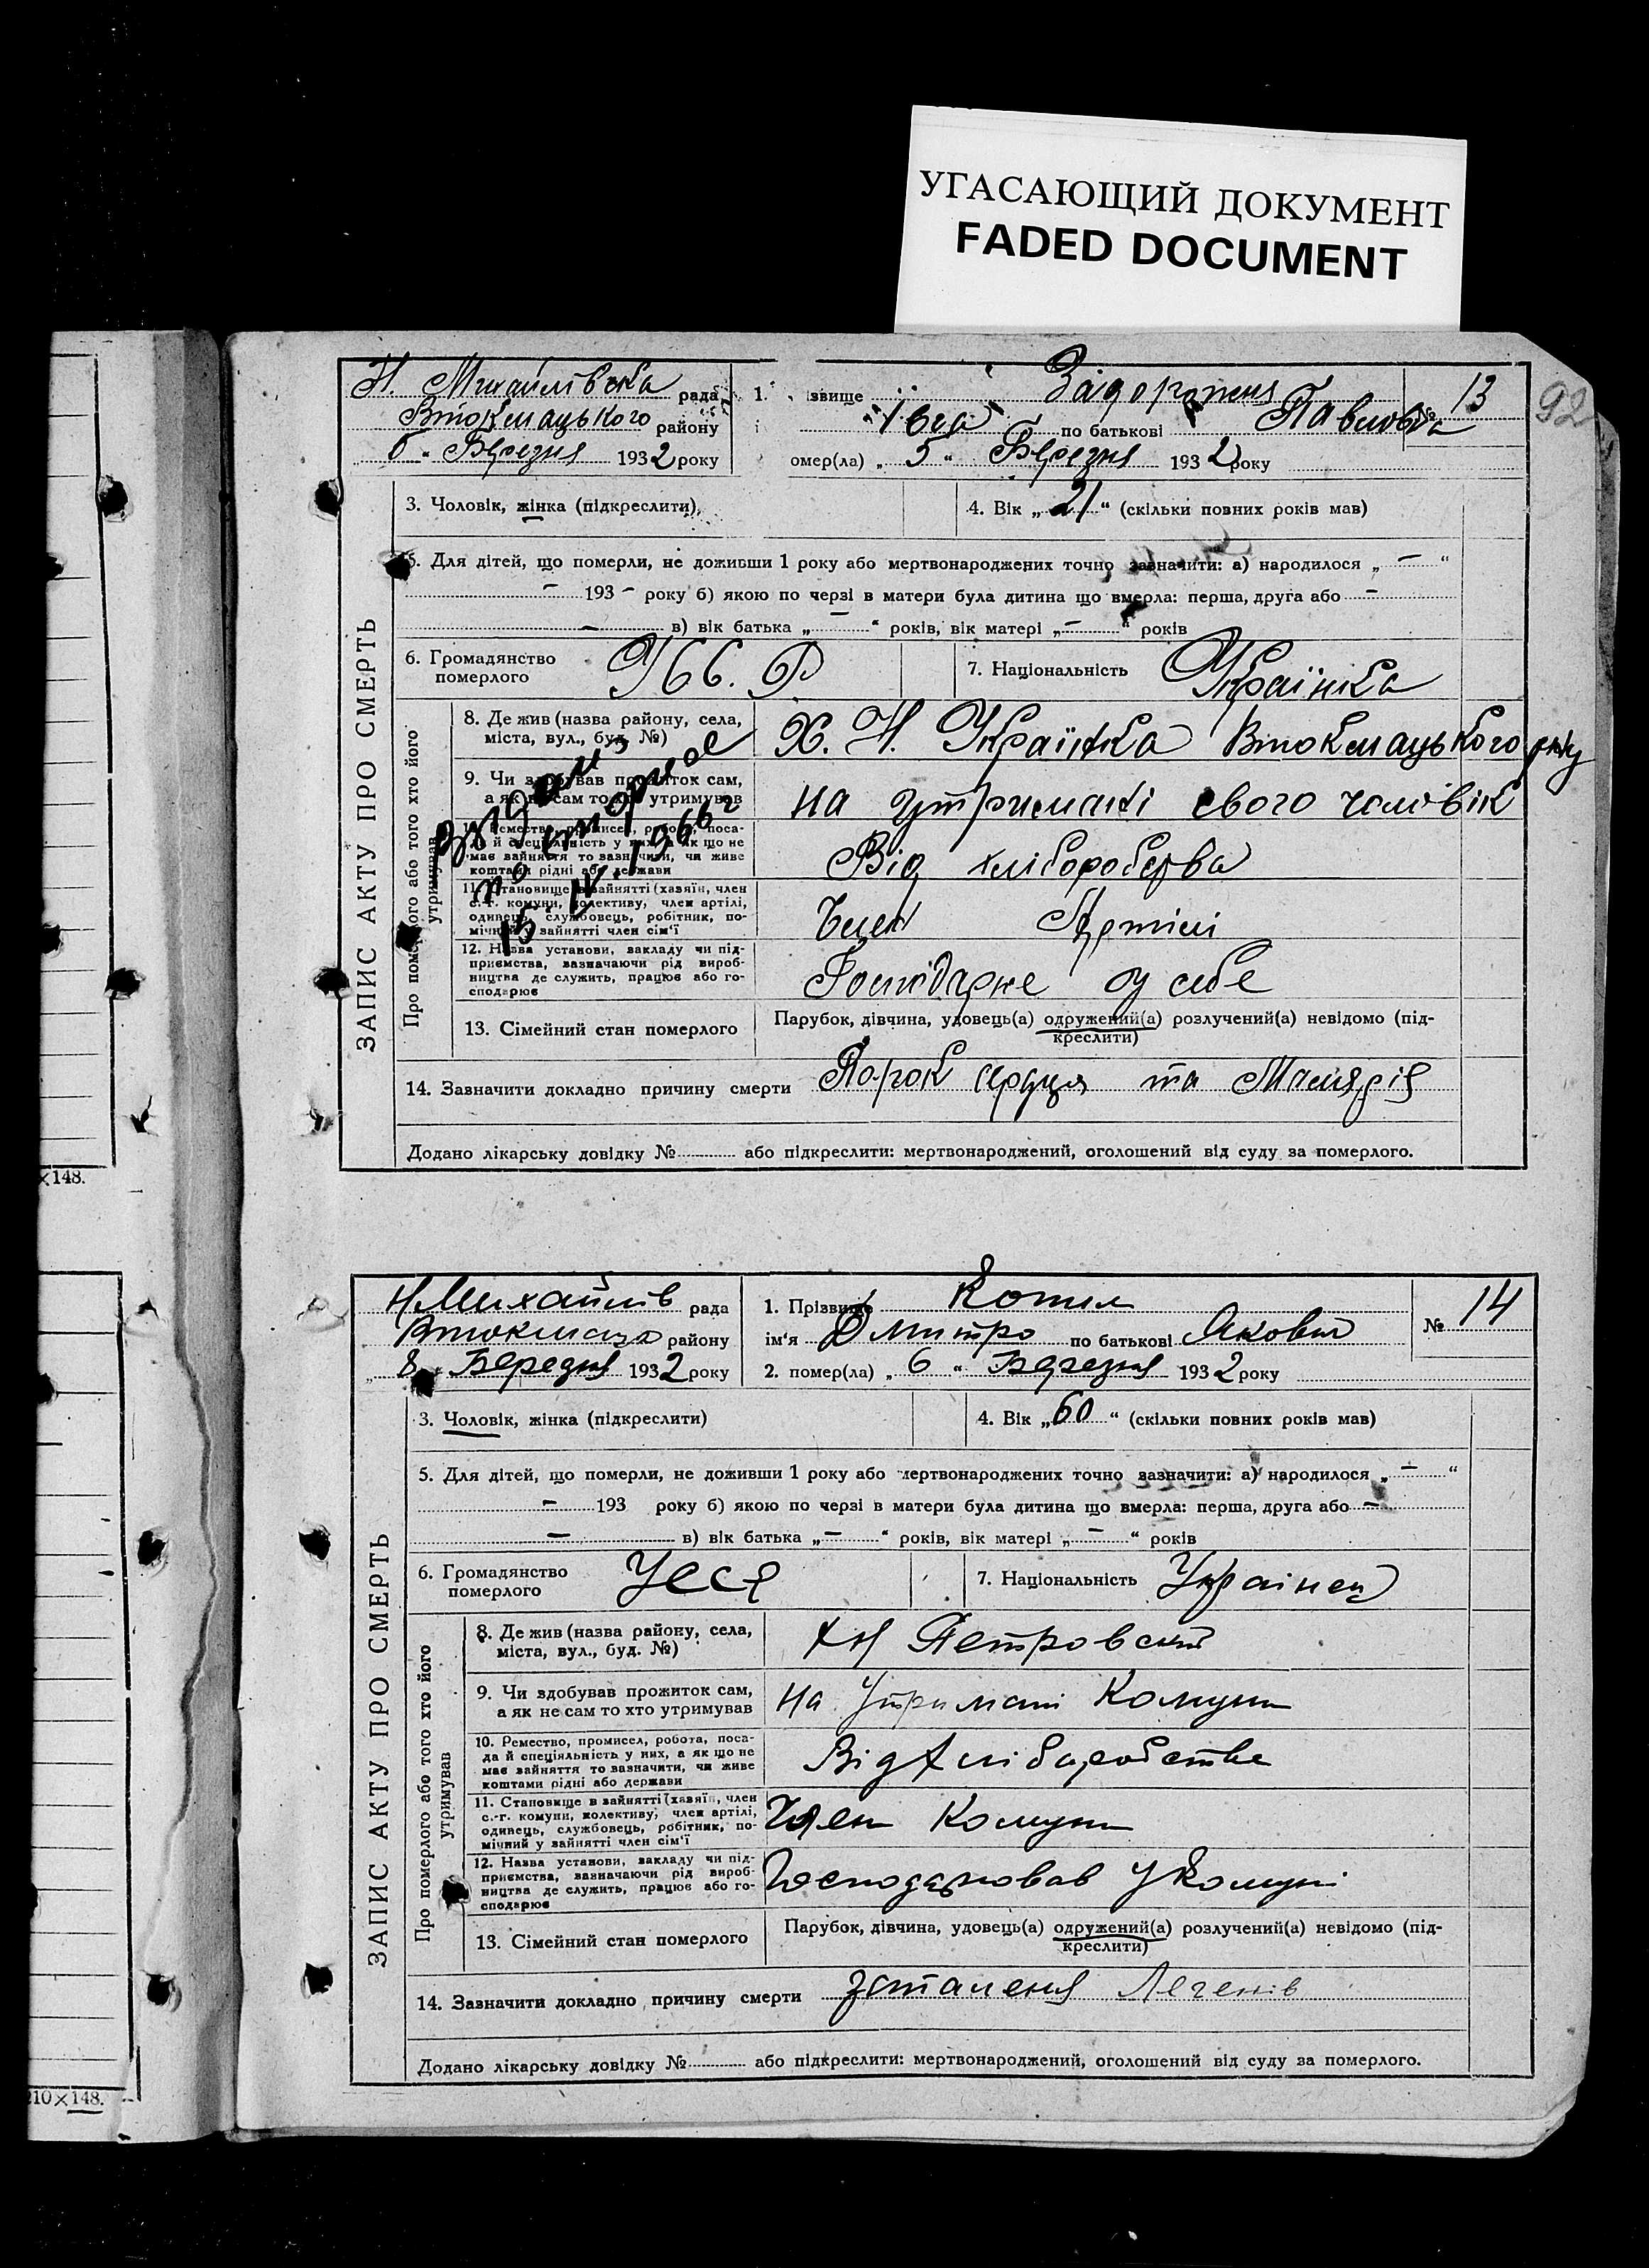 УГАСАЮЩИЙ ДОКУМЕНТ
FADED DOCUMENT
92
Н. Михайлівська рада
Втокмацького району
„ 6 “ Березня 1932 року
1. звище Задорожня
Павловна
№ 13
по батькові
омер(ла) „ 5 “ Березня 1932 року
ЗАПИС АКТУ ПРО СМЕРТЬ
3. Чоловік, жінка (підкреслити),
4. Вік „ 21 “ (скільки повних років мав)
5. Для дітей, що померли, не доживши 1 року або мертвонароджених точно зазначити: а) народилося „ – “
– 193 – року б) якою по черзі в матери була дитина що вмерла: перша, друга або –
– в) вік батька „ – “ років, вік матері „ – “ років
6. Громадянство
померлого
У С С. Р
7. Національність Українка
Про померлого або того хто його
утримував
8. Де жив (назва району, села,
міста, вул., буд. №)
Х. Н. Українка Втокмацького р-ну
9. Чи здобував прожиток сам,
а як не сам то хто утримував
на утримані свого чоловік
10. Ремество, промисел, робота, поса-
да й спеціяльність у них, а як що не
має зайняття то зазначити, чи живе
коштами рідні або держави
Від хліборобства
11. Становище в зайнятті (хазяїн, член
с.-г. комуни, колективу, член артілі,
одинець, службовець, робітник, по-
мічний у зайнятті член сім'ї
Член Артілі
12. Назва установи, закладу чи під-
приємства, зазначаючи рід вироб-
ництва де служить, працює або го-
сподарює
у себе
повторное
15. IV. 1966 г
13. Сімейний стан померлого
Парубок, дівчина, удовець(а) одружений(а) розлучений(а) невідомо (під-
креслити)
14. Зазначити докладно причину смерти Порок сердця та Малярія
Додано лікарську довідку № або підкреслити: мертвонароджений, оголошений від суду за померлого.
×148.
Н Михайлів рада
району
„ 8 “ Березня 1932 року
1. Прізвище Котил
ім'я Дмитро по батькові Якович
2. помер(ла) „ 6 “ Березня 1932 року
№ 14
ЗАПИС АКТУ ПРО СМЕРТЬ
3. Чоловік, жінка (підкреслити)
4. Вік „ 60 “ (скільки повних років мав)
5. Для дітей, що померли, не доживши 1 року або мертвонароджених точно зазначити: а) народилося „ – “
– 193 року б) якою по черзі в матери була дитина що вмерла: перша, друга або –
– в) вік батька „ – “ років, вік матері „ – “ років
6. Громадянство
померлого
УССР
7. Національність Українец
Про померлого або того хто його
утримував
8. Де жив (назва району, села,
міста, вул., буд. №)
хН Петровский
9. Чи здобував прожиток сам,
а як не сам то хто утримував
На Утримані Комуни
10. Ремество, промисел, робота, поса-
да й спеціяльність у них, а як що не
має зайняття то зазначити, чи живе
коштами рідні або держави
Від хліборобства
11. Становище в зайнятті (хазяїн, член
с.-г. комуни, колективу, член артілі,
одинець, службовець, робітник, по-
мічний у зайнятті член сім'ї
Член Комуни
12. Назва установи, закладу чи під-
приємства, зазначаючи рід вироб-
ництва де служить, працює або го-
сподарює
Господарював У Комуні
13. Сімейний стан померлого
Парубок, дівчина, удовець(а) одружений(а) розлучений(а) невідомо (під-
креслити)
14. Зазначити докладно причину смерти запаленя Легенів
Додано лікарську довідку № або підкреслити: мертвонароджений, оголошений від суду за померлого.
210×148.